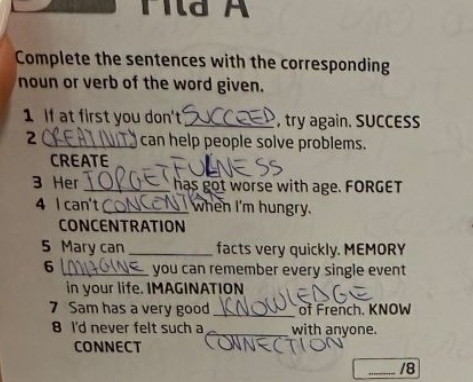 Fila A
Complete the sentences with the corresponding
noun or verb of the word given.
1 If at first you don't SUCCEED, try again. SUCCESS
2 CREATIVITY can help people solve problems.
CREATE
3 Her FORGETFULNESS has got worse with age. FORGET
4 I can't CONCENTRA when I'm hungry.
CONCENTRATION
5 Mary can ________ facts very quickly. MEMORY
6 IMAGINE you can remember every single event
in your life. IMAGINATION
7 Sam has a very good KNOWLEDGE of French. KNOW
8 I'd never felt such a CONNECTION with anyone.
CONNECT
/8